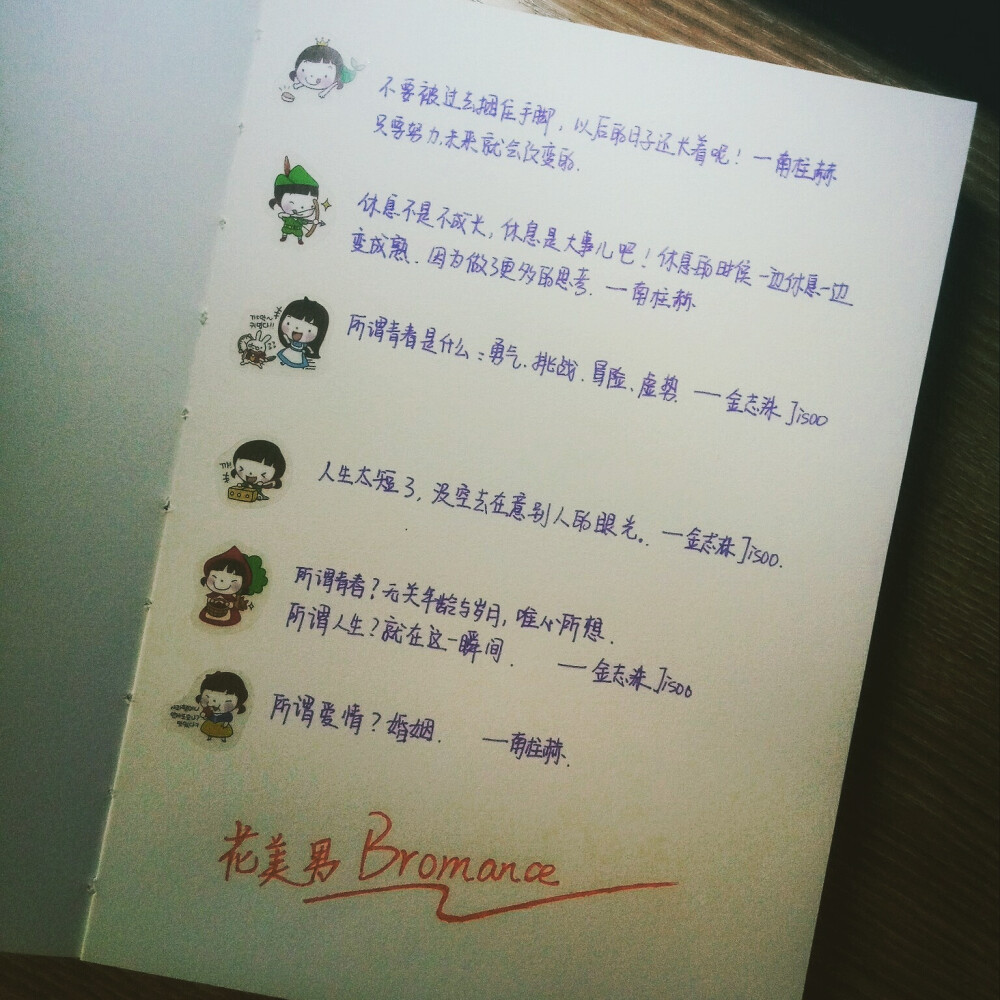 不要被过去捆住手脚，以后的日子还长着呢！一南柱赫
只要努力未来就会改变的.
休息不是不成长，休息是大事儿吧！休息的时候一边休息一边
变成熟．因为做了更多的思考．一南柱赫
所谓青春是什么：勇气．挑战．冒险、虚势．——金志洙Jisoo
人生太短了，没空去在意别人的眼光。．—金志洙Jisoo.
所谓青春？无关年龄与岁月，唯心所想．
所谓人生？就在这一瞬间．——金志洙Jisoo
所谓爱情？婚姻．——南柱赫．
花美男 Bromance